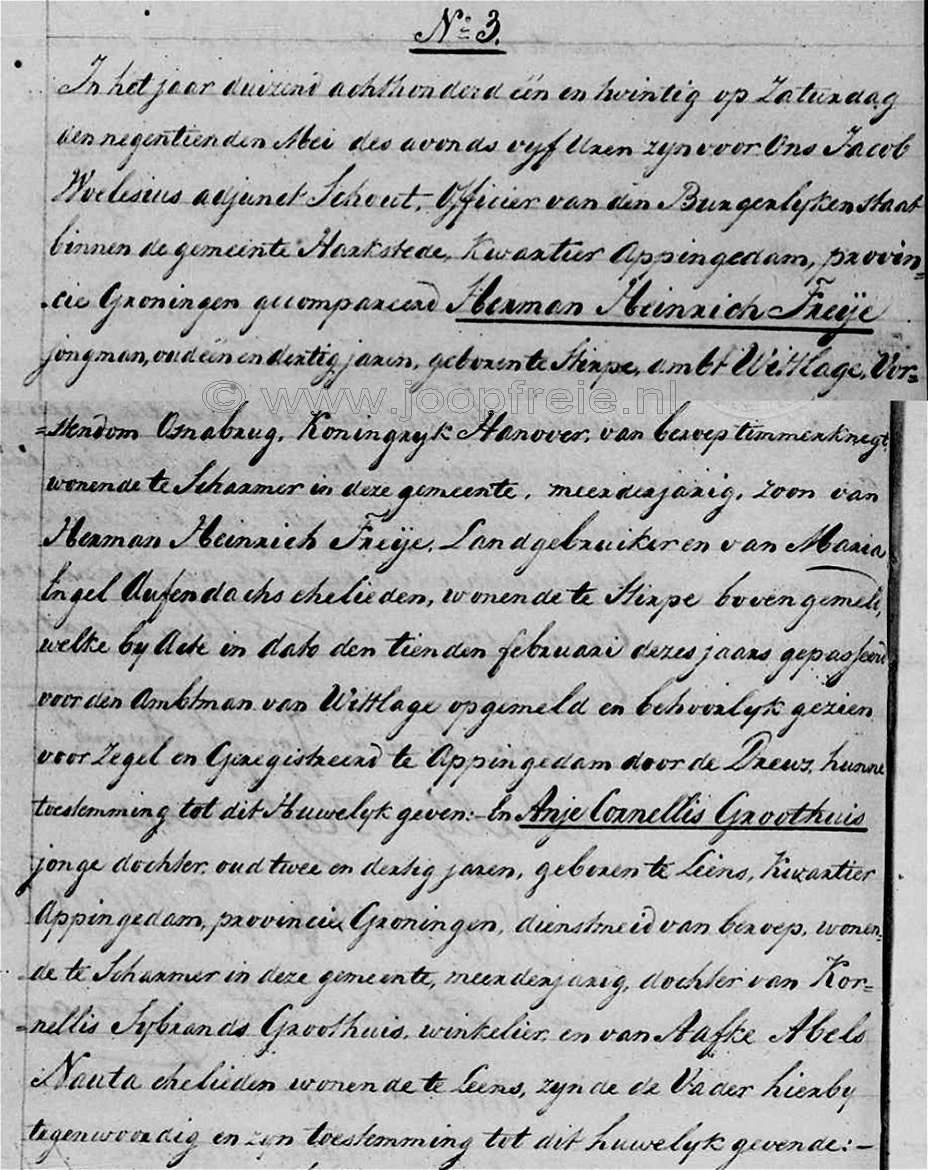 No 3.
In het jaar duizend achthonderd één en twintig op Zaturdag
den negentienden Mei des avonds vyf Uren zyn voor Ons Jacob
Woelesius adjunct Schout, Officier van den Burgerlyken staat
binnen de gemeente Harkstede, Kwartier Appingedam, provin=
cie Groningen gecompareerd Herman Heinrich Freije
jongman, oud één en dertig jaren, geboren te Stirpe, ambt Wittlage, Vor=
© www.joopfreie.nl
=stendom Osnabrug, Koningryk Hanover, van beroep timmerknegt,
wonende te Scharmer in deze gemeente, meerderjarig, zoon van
Herman Heinrich Freije, Landgebruiker en van Maria
Engel Aufendachs ehelieden, wonende te Stirpe bovengemeld,
welke by Acte in dato den tienden februari dezes jaars gepasseerd
voor den Ambtman van Wittlage opgemeld en behoorlyk gezien
voor Zegel en Geregistreerd te Appingedam door de Drews, hunne
toestemming tot dit Huwelyk geven:- En Anje Cornellis Groothuis
jonge dochter, oud twee en dertig jaren, geboren te Leens, Kwartier
Appingedam, provincie Groningen, dienstmeid van beroep, wonen=
de te Scharmer in deze gemeente, meerderjarig, dochter van Kor=
=nellis Sybrands Groothuis, winkelier, en van Aafke Abels
Nauta ehelieden wonende te Leens, zynde de Vader hierby
tegenwoordig en zyn toestemming tot dit huwelyk gevende:-